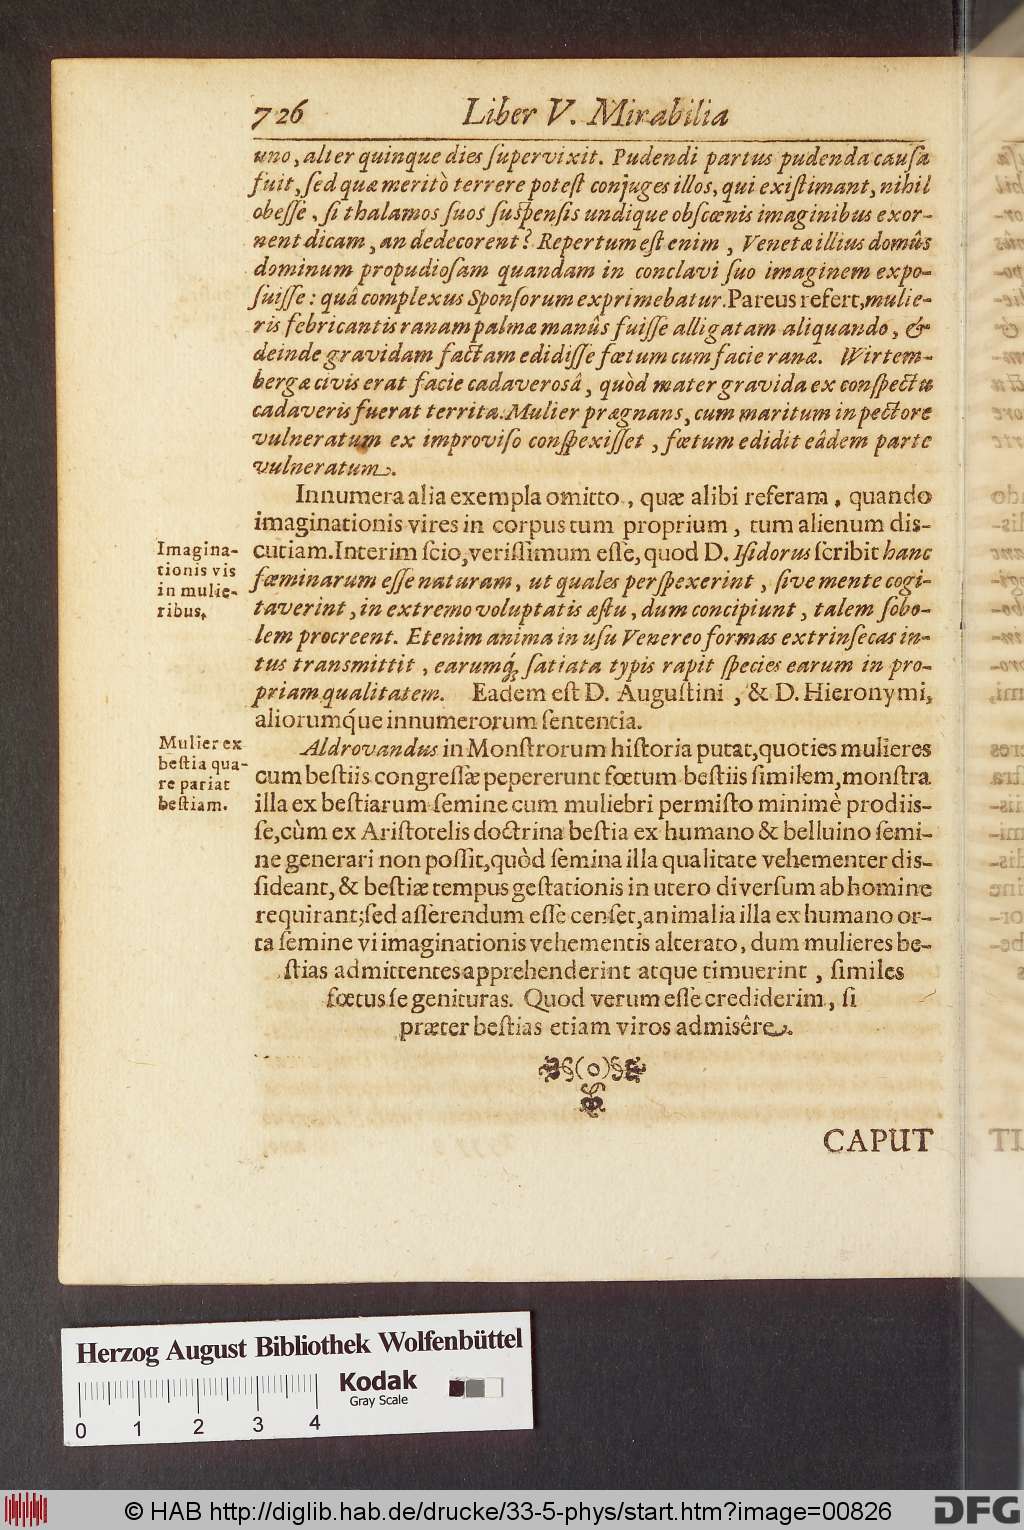 726 Liber V. Mirabilia
uno, alter quinque dies ſupervixit. Pudendi partus pudenda cauſa
fuit, ſed quæ meritò terrere poteſt conjuges illos, qui exiſtimant, nihil
obeſſe, ſi thalamos ſuos ſuſpenſis undique obſcœnis imaginibus exor-
nent dicam, an dedecorent? Repertum eſt enim, Venetæ illius domûs
dominum propudioſam quandam in conclavi ſuo imaginem expo-
ſuiſſe: quâ complexus Sponſorum exprimebatur. Pareus refert, mulie-
ris febricantis ranam palmæ manûs fuiſſe alligatam aliquando, &
deinde gravidam factam edidiſſe fœtum cum facie ranæ. Wirtem-
bergæ civis erat facie cadaveroſâ, quòd mater gravida ex conſpectu
cadaveris fuerat territa. Mulier prægnans, cum maritum in pectore
vulneratum ex improviſo conſpexiſſet, fœtum edidit eâdem parte
vulneratum.
Innumera alia exempla omitto, quæ alibi referam, quando
imaginationis vires in corpus tum proprium, tum alienum dis-
cutiam. Interim ſcio, veriſſimum eſſe, quod D. Iſidorus ſcribit hanc
fœminarum eſſe naturam, ut quales perſpexerint, ſive mente cogi-
taverint, in extremo voluptatis æſtu, dum concipiunt, talem ſobo-
lem procreent. Etenim anima in uſu Venereo formas extrinſecas in-
tus transmittit, earumq́; ſatiata typis rapit ſpecies earum in pro-
priam qualitatem. Eadem eſt D. Auguſtini, & D. Hieronymi,
aliorumq́ue innumerorum ſententia.
Imagina-
tionis vis
in mulie-
ribus.
Aldrovandus in Monſtrorum hiſtoria putat, quoties mulieres
cum beſtiis congreſſæ pepererunt fœtum beſtiis ſimilem, monſtra
illa ex beſtiarum ſemine cum muliebri permiſto minimè prodiiſ-
ſe, cùm ex Ariſtotelis doctrina beſtia ex humano & belluino ſemi-
ne generari non poſſit, quòd ſemina illa qualitate vehementer diſ-
ſideant, & beſtiæ tempus geſtationis in utero diverſum ab homine
requirant; ſed aſſerendum eſſe cenſet, animalia illa ex humano or-
ta ſemine vi imaginationis vehementis alterato, dum mulieres be-
ſtias admittentes apprehenderint atque timuerint, ſimiles
fœtus ſe genituras. Quod verum eſſe crediderim, ſi
præter beſtias etiam viros admisêre.
Mulier ex
beſtia qua-
re pariat
beſtiam.
§(o)§
CAPUT
Herzog August Bibliothek Wolfenbüttel
Kodak
Gray Scale
0 1 2 3 4
© HAB http://diglib.hab.de/drucke/33-5-phys/start.htm?image=00826
DFG